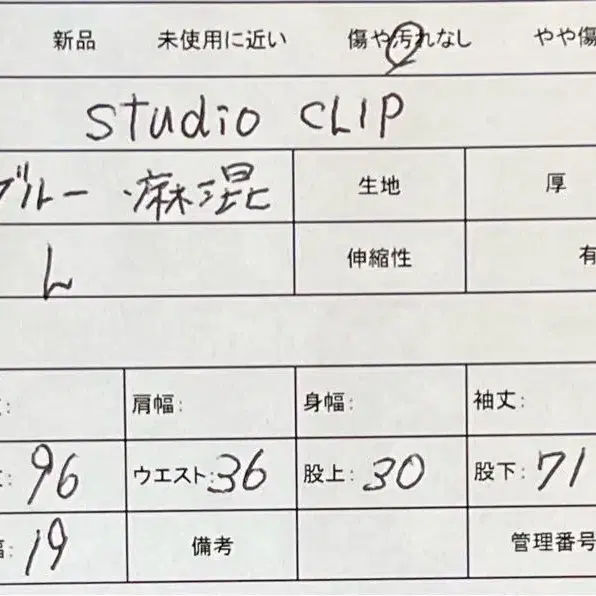 新品 未使用に近い 傷や汚れなし やや傷
studio CLIP
ブルー 麻混 生地 厚
L 伸縮性 有
: 肩幅: 身幅: 袖丈:
: 96 ウエスト: 36 股上: 30 股下: 71
幅: 19 備考 管理番号